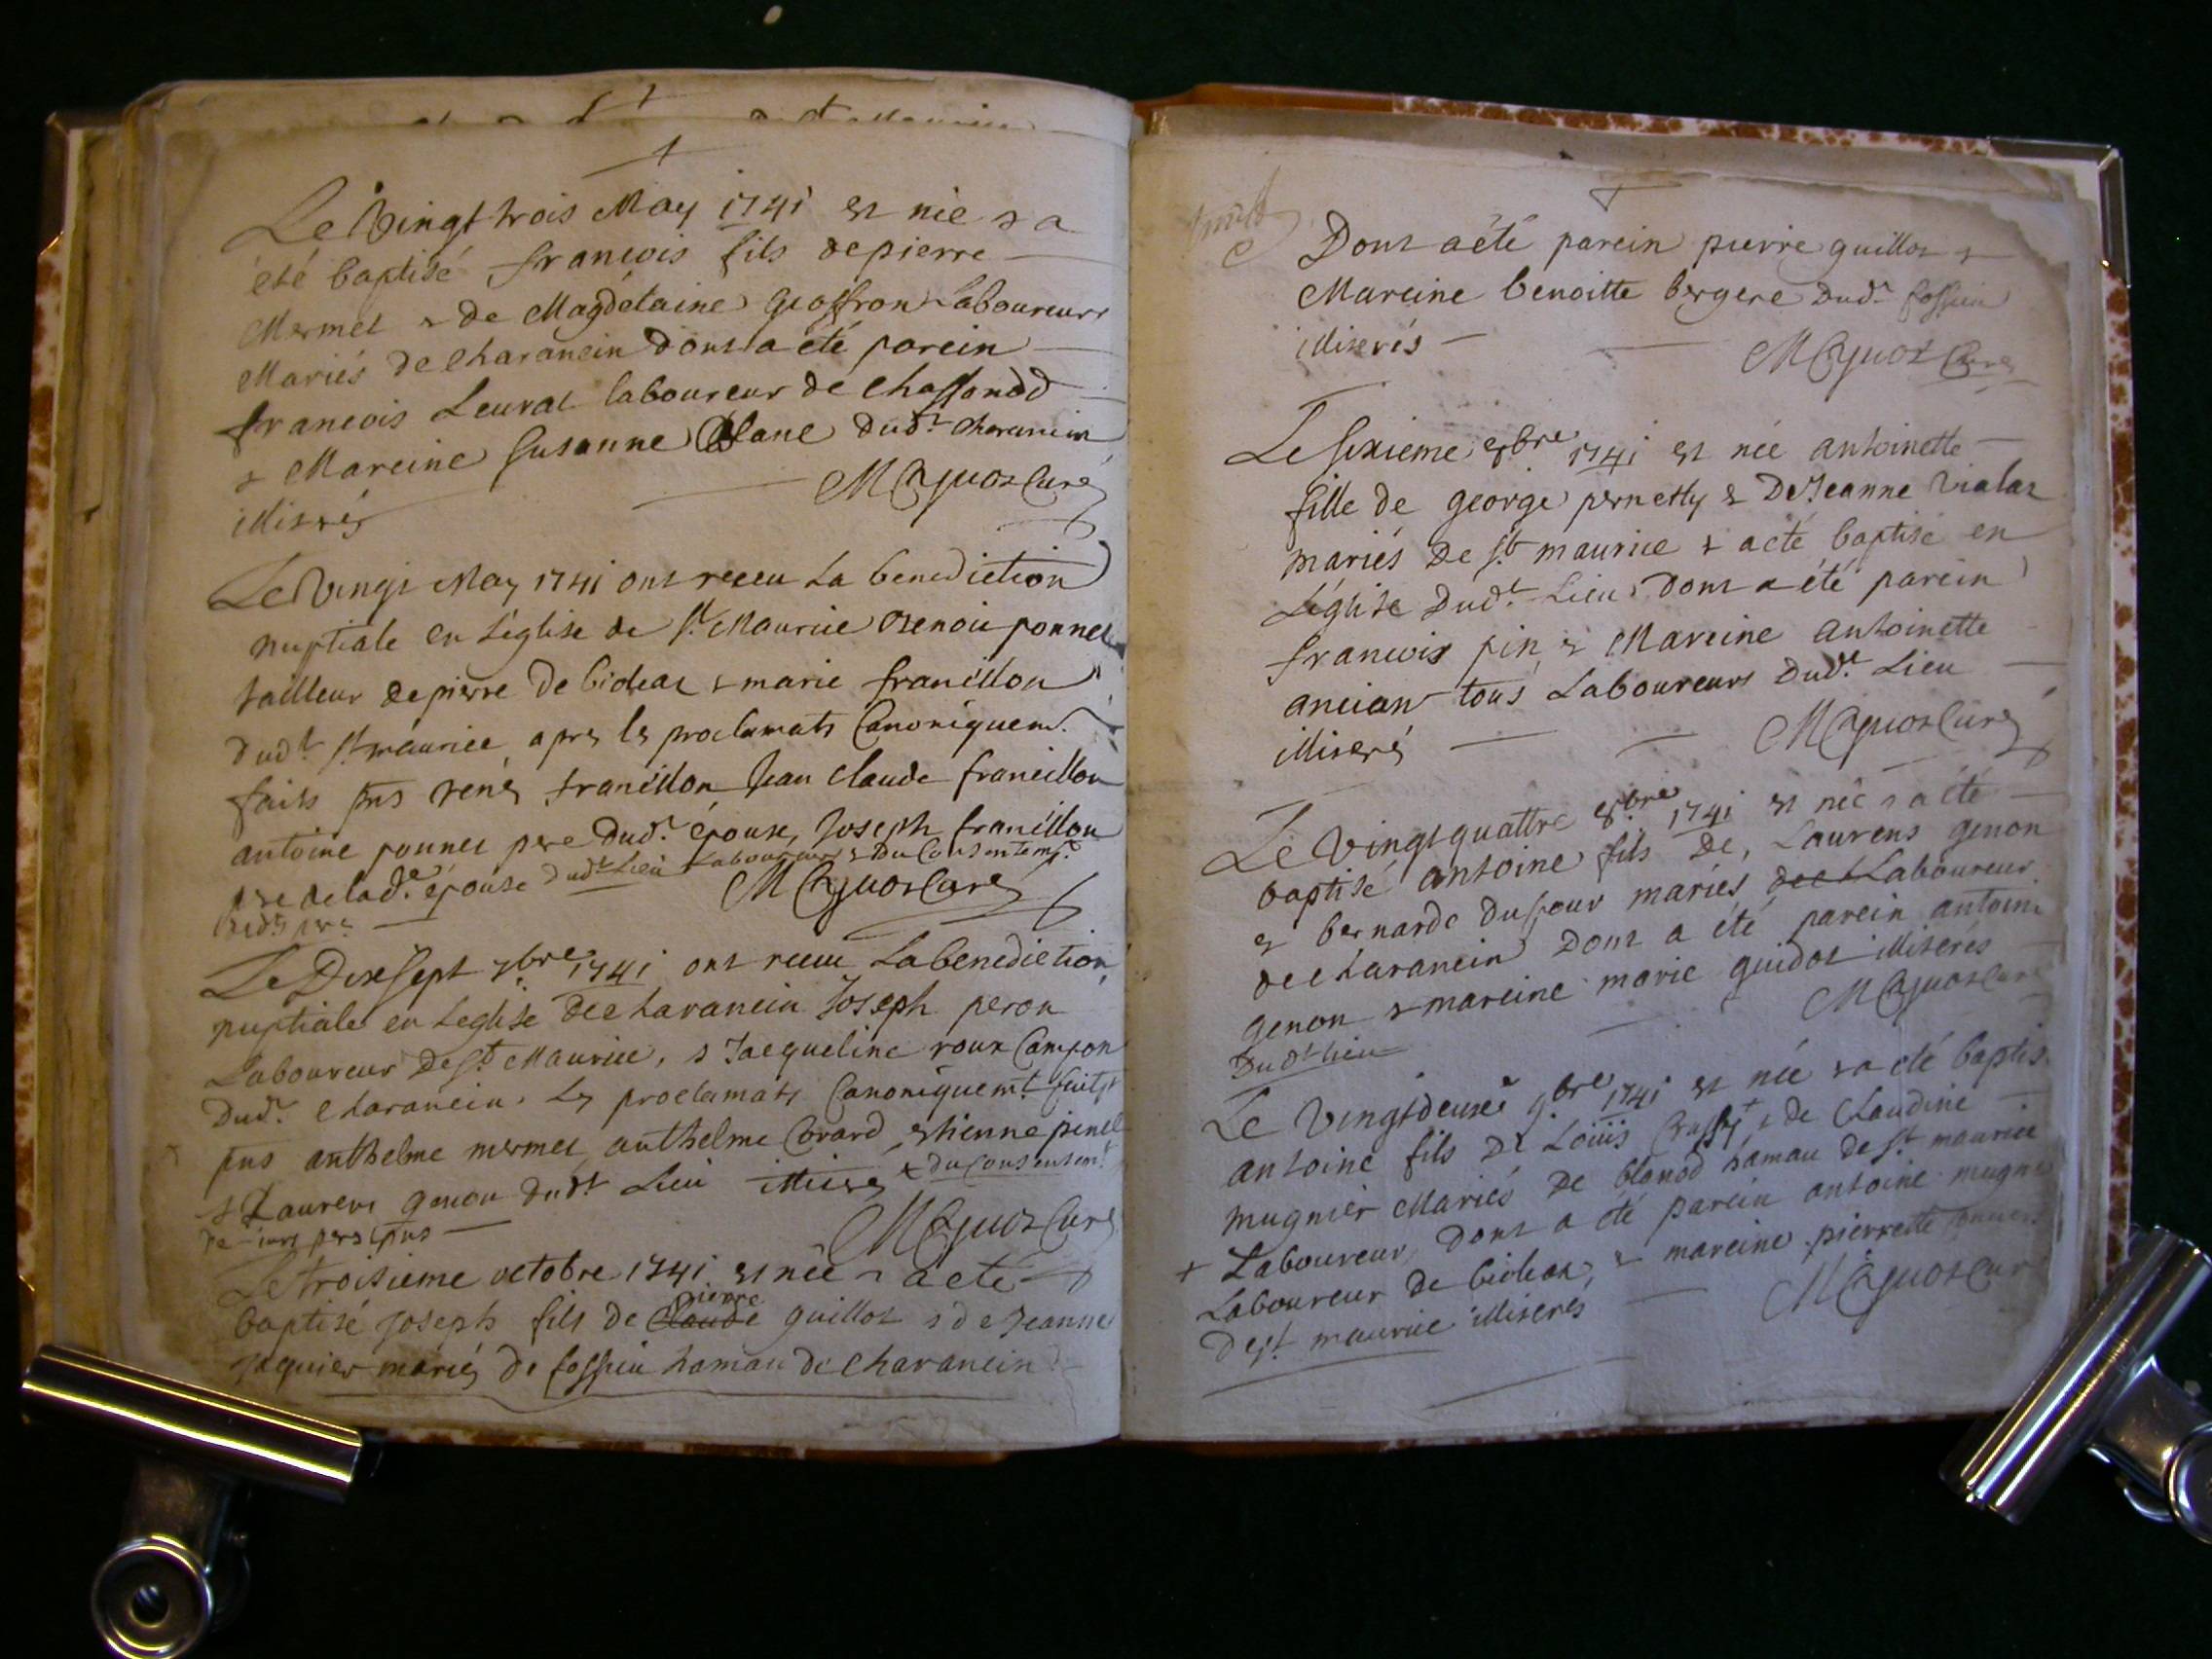 Le Vingt trois May 1741 est née & a
été baptisé francois fils de pierre
Mermet & de Magdelaine Geoffron Laboureurs
Mariés de charancin dont a été parein
francois Leurat laboureur de chassonod
& Mareine Susanne Blanc dud.t charancin
illiterés M Cajuot Curé
Le Vingt May 1741 ont receu La benediction
nuptiale en L'église de S.t Maurice ponnet
tailleur de pierre de bioleaz & marie francillon
dud.t S.t maurice apres les proclamats Canoniquem.t
faits pns rené francillon Jean claude francillon
antoine ponnet pere dud.t époux, Joseph francillon
pere de lad.e épouse dud.t Lieu Laboureurs & Du Consentem.t
desd.ts peres M Cajuot Curé
Le Dixsept 7.bre 1741 ont receu La benediction
nuptiale en Leglise de charancin Joseph peron
Laboureur de S.t Maurice, & Jacqueline roux Campon
Dud.t charancin. Les proclamats Canoniquem.t faits
pns anthelme mermet anthelme Corard, etienne pinel
& Laurens genon dud.t Lieu illiterés & du Consentem.t
de peres pns M Cajuot Curé
Le troisieme octobre 1741 est née & a eté
baptisé joseph fils de Claude pierre guillot & de Jeanne
jaquier mariés de fossieu hamau de charancin
Dont a été parein pierre guillot &
Mareine benoitte bergere Dud.t fossieu
illiterés M Cajuot Curé
Le Sixieme 8.bre 1741 est née antoinette
fille de george pernetty & De Jeanne Vialat
mariés De S.t maurice & a eté baptisé en
L'église Dud.t Lieu Dont a été parein
francois pin & Mareine antoinette
ancian tous Laboureurs Dud.t Lieu
illiterés M Cajuot Curé
Le Vingt quattre 8.bre 1741 est née & a été
baptisé antoine fils De, Laurens genon
& bernarde Dufour mariés de ch Laboureur
de charancin Dont a été parein antoine
genon & mareine marie guidot illiterés
Dud.t lieu M Cajuot Curé
Le Vingtdeuse 9.bre 1741 est née & a eté baptisé
antoine fils De Loüis & de Claudine
mugnier Mariés De blanod hamau de S.t maurice
+ Laboureur, Dont a été parein antoine mugnier
Laboureur de bioleaz, & mareine pierrette
De S.t maurice illiterés M Cajuot Curé